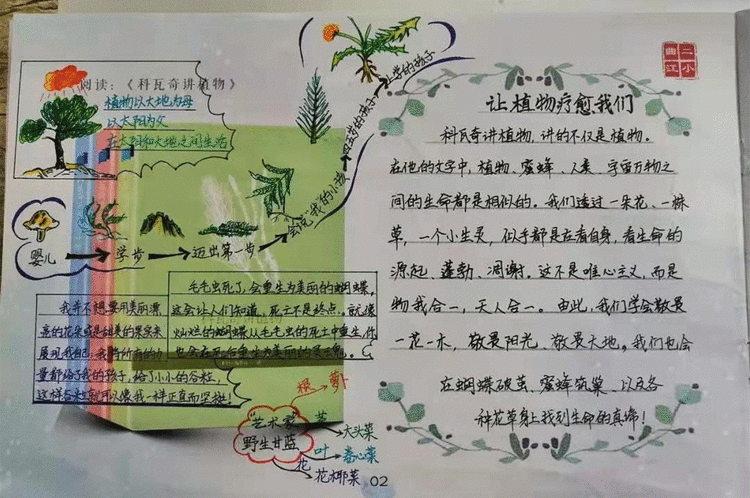 阅读：《科瓦奇讲植物》
植物以大地为母
以太阳为父
在太阳和大地之间生活
婴儿
学步
迈出第一步
会说我的小孩
四五岁的孩子
上学的孩子
我并不想要用美丽漂
亮的花朵或是甜美的果实来
展现我自己，我将所有的力
量都给了我的孩子，给了小小的谷粒，
这样谷粒就可以像我一样正直而坚挺！
毛毛虫死了，会重生为美丽的蝴蝶，
这会让人们知道，死亡不是终点。就像
灿烂的蝴蝶从毛毛虫的死亡中重生，你
也会在死后重生为美丽的灵魂。
“艺术家”
野生甘蓝
根
萝卜
茎
大头菜
叶
卷心菜
花
花椰菜
02
二小
曲江
让植物疗愈我们
科瓦奇讲植物，讲的不仅是植物。
在他的文字中，植物、蜜蜂、人类、宇宙万物之
间的生命都是相似的。我们透过一朵花、一棵
草，一个小生灵，似乎都是在看自身，看生命的
源起、蓬勃、凋谢。这不是唯心主义，而是
物我合一，天人合一。由此，我们学会敬畏
一花一木，敬畏阳光，敬畏大地。我们也会
在蝴蝶破茧、蜜蜂筑巢、以及各
种花草身上找到生命的真谛！